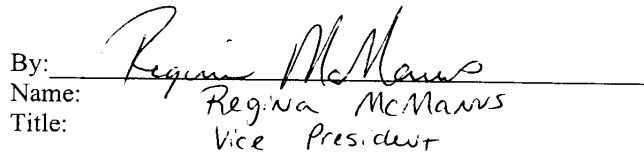 By: Regina McManus
Name: Regina McManus
Title: Vice President